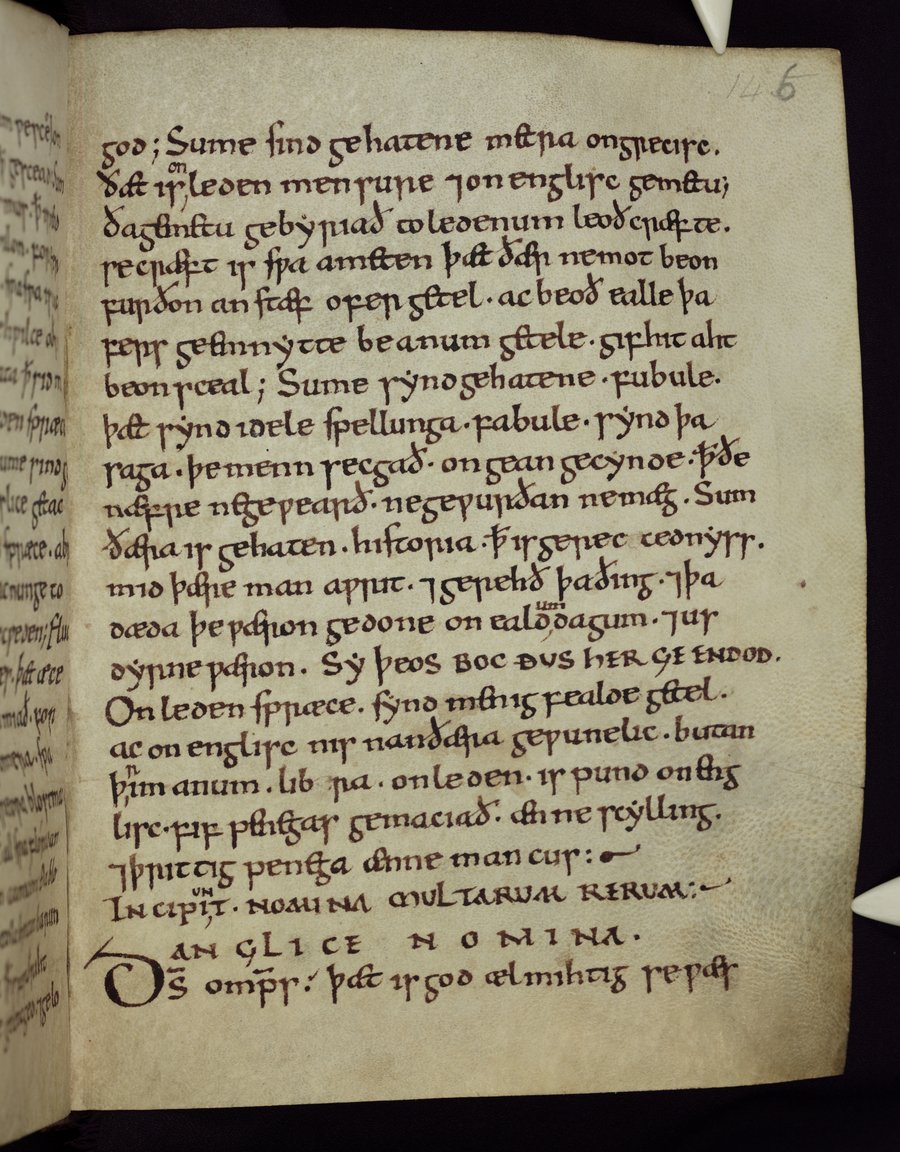 145
god; Sume sind gehatene mętra on grecisc.
ðæt is on leden mensure ⁊ on englisc gemętu;
ðas gemętu gebyriað to ledenum leoðcræfte.
se cræft is swa amęten þæt ðær ne mot beon
furðon an stæf ofer getel. ac beoð ealle þa
fers geemnytte be anum getele. gif hit aht
beon sceal; Sume synd gehatene. fabule.
þæt synd idele spellunga. fabule. synd þa
saga. þe menn secgað. ongean gecynde. þ̄ ðe
næfre ne gewearð. ne gewurðan ne mæg. Sum
ðæra is gehaten. historia. þ̄ is gerec cednyss.
mid þære man awrit. ⁊ gerehð þa ðing. ⁊ þa
dæda þe wæron gedone on ealdum dagum. ⁊ us
dyrne wæron. SY þEOS BOC ÐUS HER GE ENDOD.
On leden spræce. synd męnigfealde getel.
ac on englisc nis nan ðæra gewunelic. butan
þrim anum. lib ra. on leden. is pund on eng
lisc. fif penegas gemaciað. ænne scylling.
⁊ þrittig penega ænne mancus:
INCIPIUNT. NOMINA MULTARUM RERUM:
ANGLICE NOMINA.
D̄s om̄ps: þæt is god ælmihtig se wæs